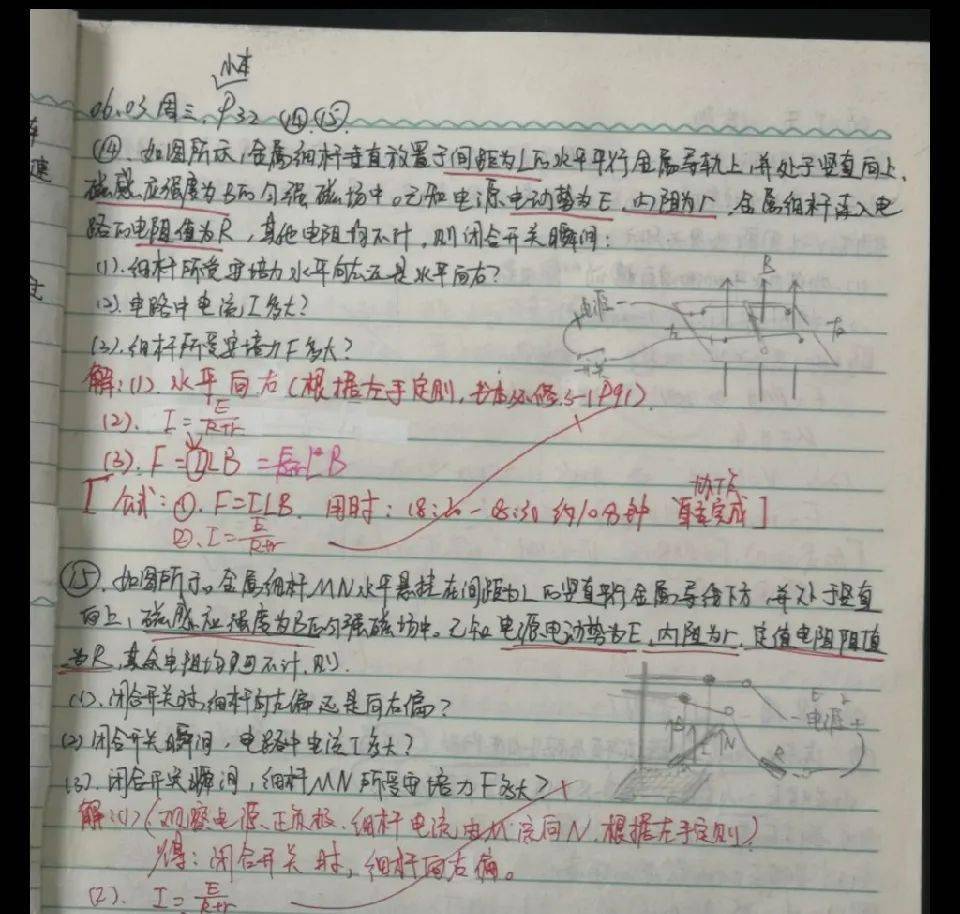 小本
06.03 周三. P32 ⑭.⑮.
⑭. 如图所示,金属细杆垂直放置于间距为L的水平平行金属导轨上,并处于竖直向上、
磁感应强度为B的匀强磁场中。已知电源电动势为E,内阻为r,金属细杆接入电
路的电阻值为R,其他电阻均不计,则闭合开关瞬间:
(1).细杆所受安培力水平向左还是水平向右?
(2).电路中电流I多大?
(3).细杆所受安培力F多大?
B
电源
开关
右
解:(1).水平向右(根据左手定则,书本必修3-1P91).
(2). I=E/R+r
(3). F=ILB =E/R+r L·B
[公式:①. F=ILB. 用时: 18:20-18:30 约10分钟
②. I=E/R+r
完成]
⑮. 如图所示。金属细杆MN水平悬挂在间距为L的竖直平行金属导线下方,并处于竖直
向上、磁感应强度为B的匀强磁场中。已知电源电动势为E,内阻为r.定值电阻阻值
为R,其余电阻均不计,则.
(1).闭合开关时,细杆向左偏还是向右偏?
(2)闭合开关瞬间,电路中电流I多大?
(3).闭合开关瞬间,细杆MN所受安培力F多大?
-电源+
B
L
N
R
解:(1)(观察电源正负极.细杆电流由M流向N.根据左手定则)
得:闭合开关时,细杆向右偏。
(2). I=E/R+r